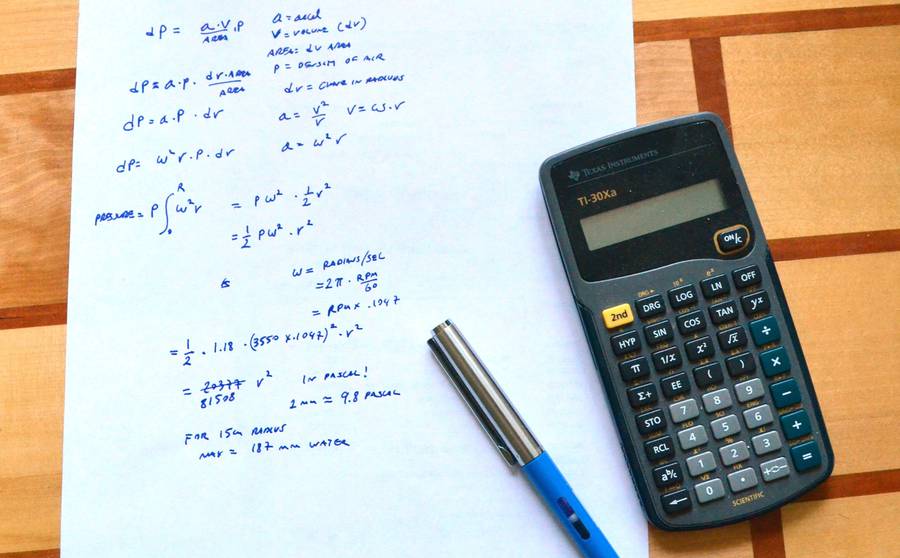 dP = a·V/AREA ·P
a = accel
V = VOLUME (dv)
AREA = dv AREA
P = DENSITY OF AIR
dP = a·P· dr·AREA/AREA
dr = CHANGE IN RADIUS
dP = a·P · dr
a = v²/r V = ω·r
dP = ω²r·P·dr
a = ω² r
PRESSURE = P ∫₀ᴿ ω²r = Pω² · 1/2 r²
= 1/2 Pω² · r²
ω = RADIANS/SEC
= 2π · RPM/60
= RPM x .1047
= 1/2 · 1.18 · (3550 x .1047)² · r²
= 20377 r² IN PASCAL!
81508
1 mm ≈ 9.8 PASCAL
FOR 15cm RADIUS
MAX = 187 mm WATER
TEXAS INSTRUMENTS
TI-30Xa
ON/C
DRG► 10ˣ eˣ
2nd DRG LOG LN OFF
HYP SIN COS TAN yˣ
π 1/x x² √x ÷
Σ+ EE ( ) ×
STO 7 8 9 −
RCL 4 5 6 +
aᵇ/c 1 2 3 =
FIX
← 0 · +⇆−
SCIENTIFIC